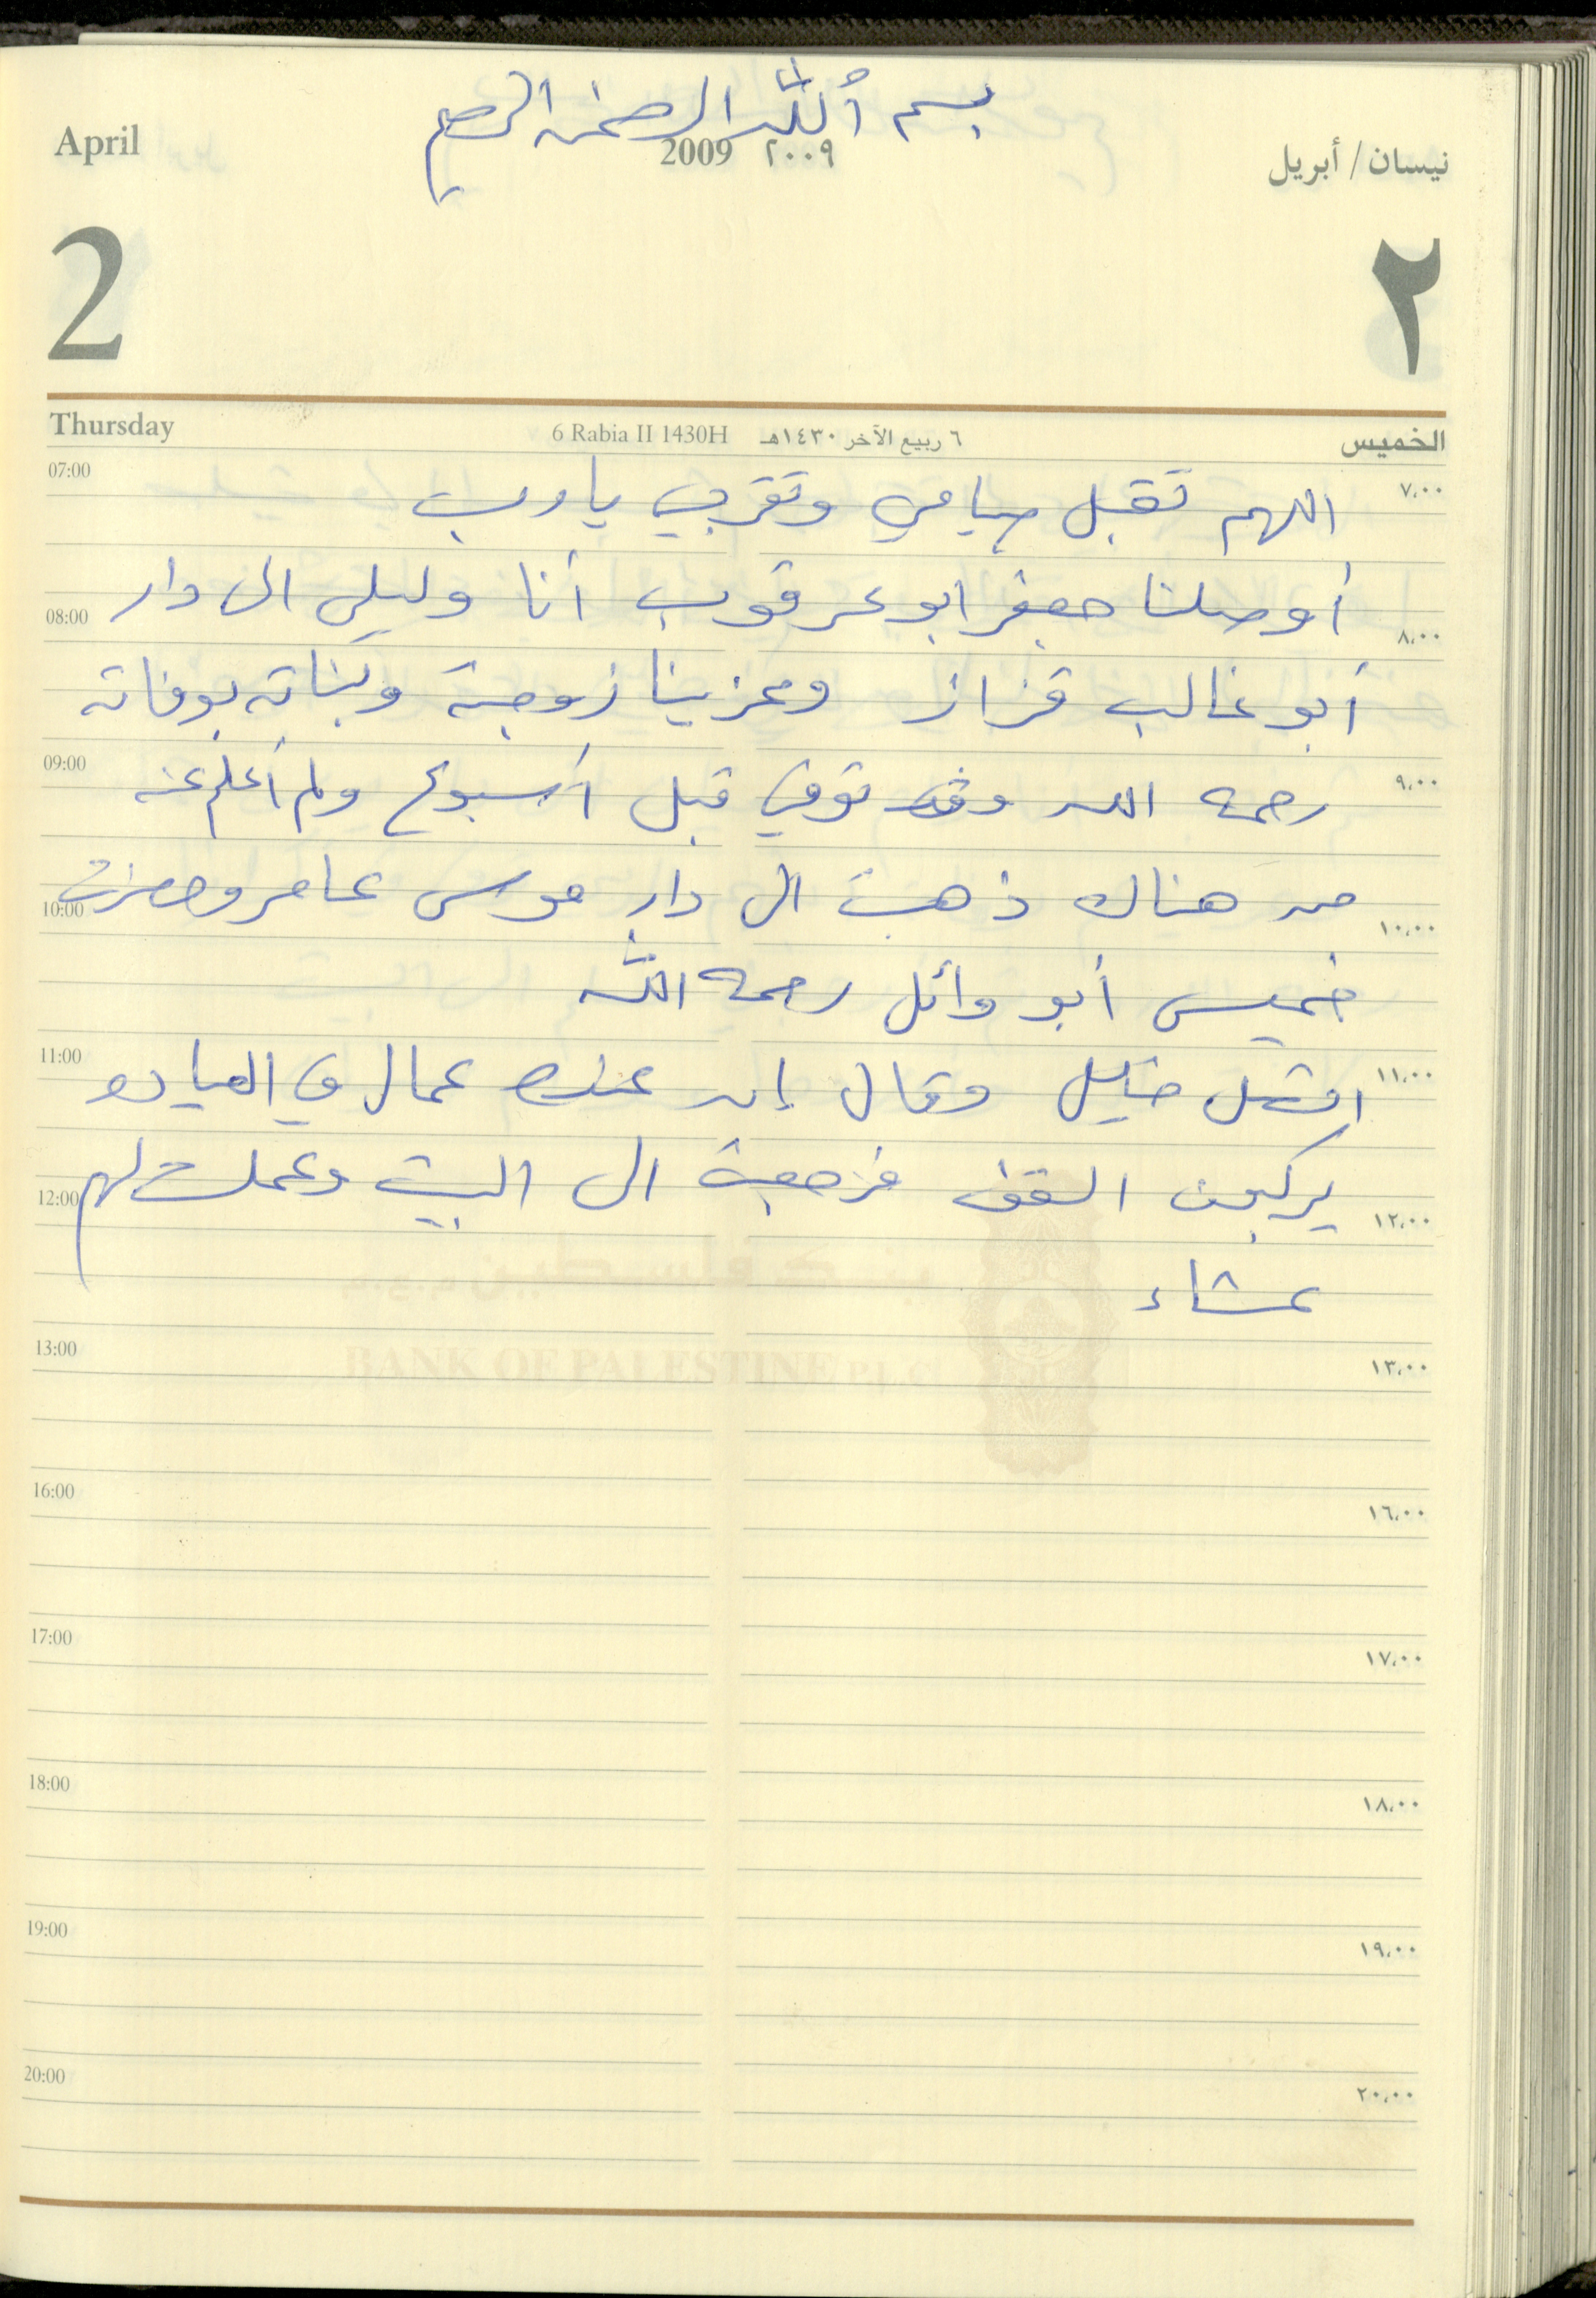 بسم ألله الرحمن الرحيم
April
2009 ٢٠٠٩
نيسان / أبريل
2
٢
Thursday
6 Rabia II 1430H ٦ ربيع الآخر ١٤٣٠هـ
الخميس
07:00 ٧,٠٠
اللهم تقبل صيامي وتقربي يا رب
أوصلنا جعفر ابو عرقوب أنا وليلى الى دار
08:00 ٨,٠٠
أبو غالب قزاز وعزينا زوجته وبناته بوفاته
09:00 ٩,٠٠
رحمه الله وقد توفي قبل أسبوع ولم أعلم عنه
من هناك ذهبت الى دار موسى عامر وحضرت
10:00 ١٠,٠٠
خميس أبو وائل رحمه الله
11:00 ١١,٠٠
اتصل خليل وقال إن عنده عمال في العياده
يركبون السقف فرجعت الى البيت وعملت لهم
12:00 ١٢,٠٠
عشاء
BANK OF PALESTINE P.L.C
13:00 ١٣,٠٠
16:00 ١٦,٠٠
17:00 ١٧,٠٠
18:00 ١٨,٠٠
19:00 ١٩,٠٠
20:00 ٢٠,٠٠